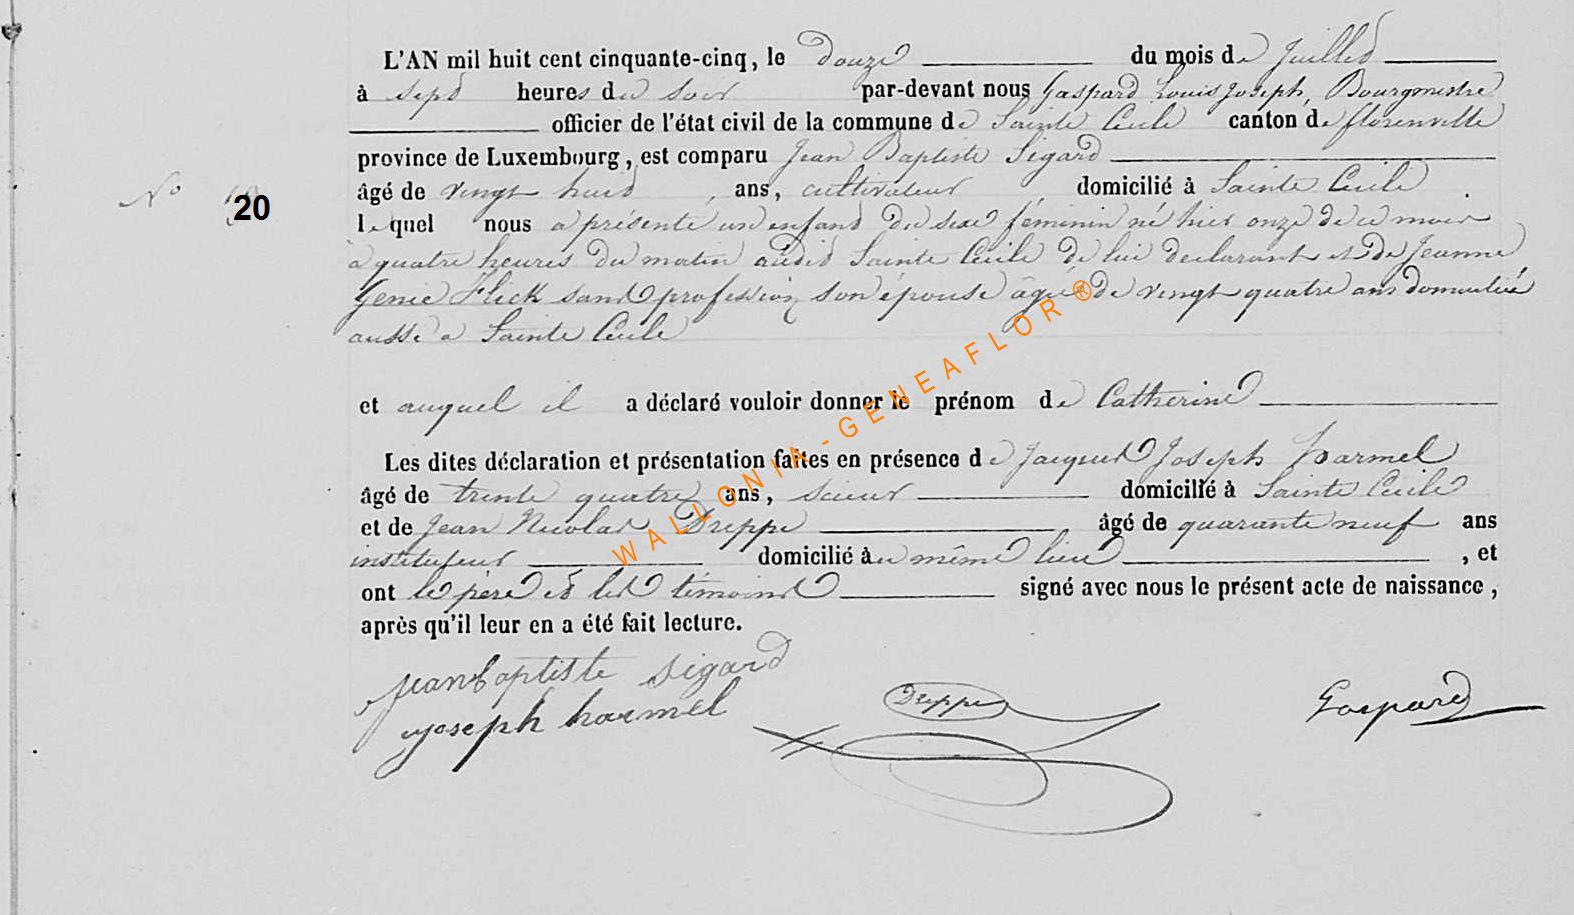 L'AN mil huit cent cinquante-cinq, le douze du mois de Juillet
à sept heures du soir par-devant nous Gaspard Louis Joseph, Bourgmestre
officier de l'état civil de la commune de Sainte Cecile canton de florenville
province de Luxembourg, est comparu Jean Baptiste Sigard
N° 20 âgé de vingt huit, ans, cultivateur domicilié à Sainte Cecile
lequel nous a présenté un enfant du sexe féminin né hier onze de ce mois
à quatre heures du matin audit Sainte Cecile de lui declarant et de Jeanne
Genie Flick sans profession son épouse âgée de vingt quatre ans domiciliée
aussi a Sainte Cecile
et auquel il a déclaré vouloir donner le prénom de Catherine
Les dites déclaration et présentation faites en présence de Jacques Joseph harmel
âgé de trente quatre ans, scieur domicilié à Sainte Cecile
et de Jean Nicolas Dreppe âgé de quarante neuf ans
instituteur domicilié au même lieu, et
ont le père et les témoins signé avec nous le présent acte de naissance,
après qu'il leur en a été fait lecture.
jean baptiste sigard
joseph harmel Dreppe Gaspard
WALLONIA-GENEAFLOR®